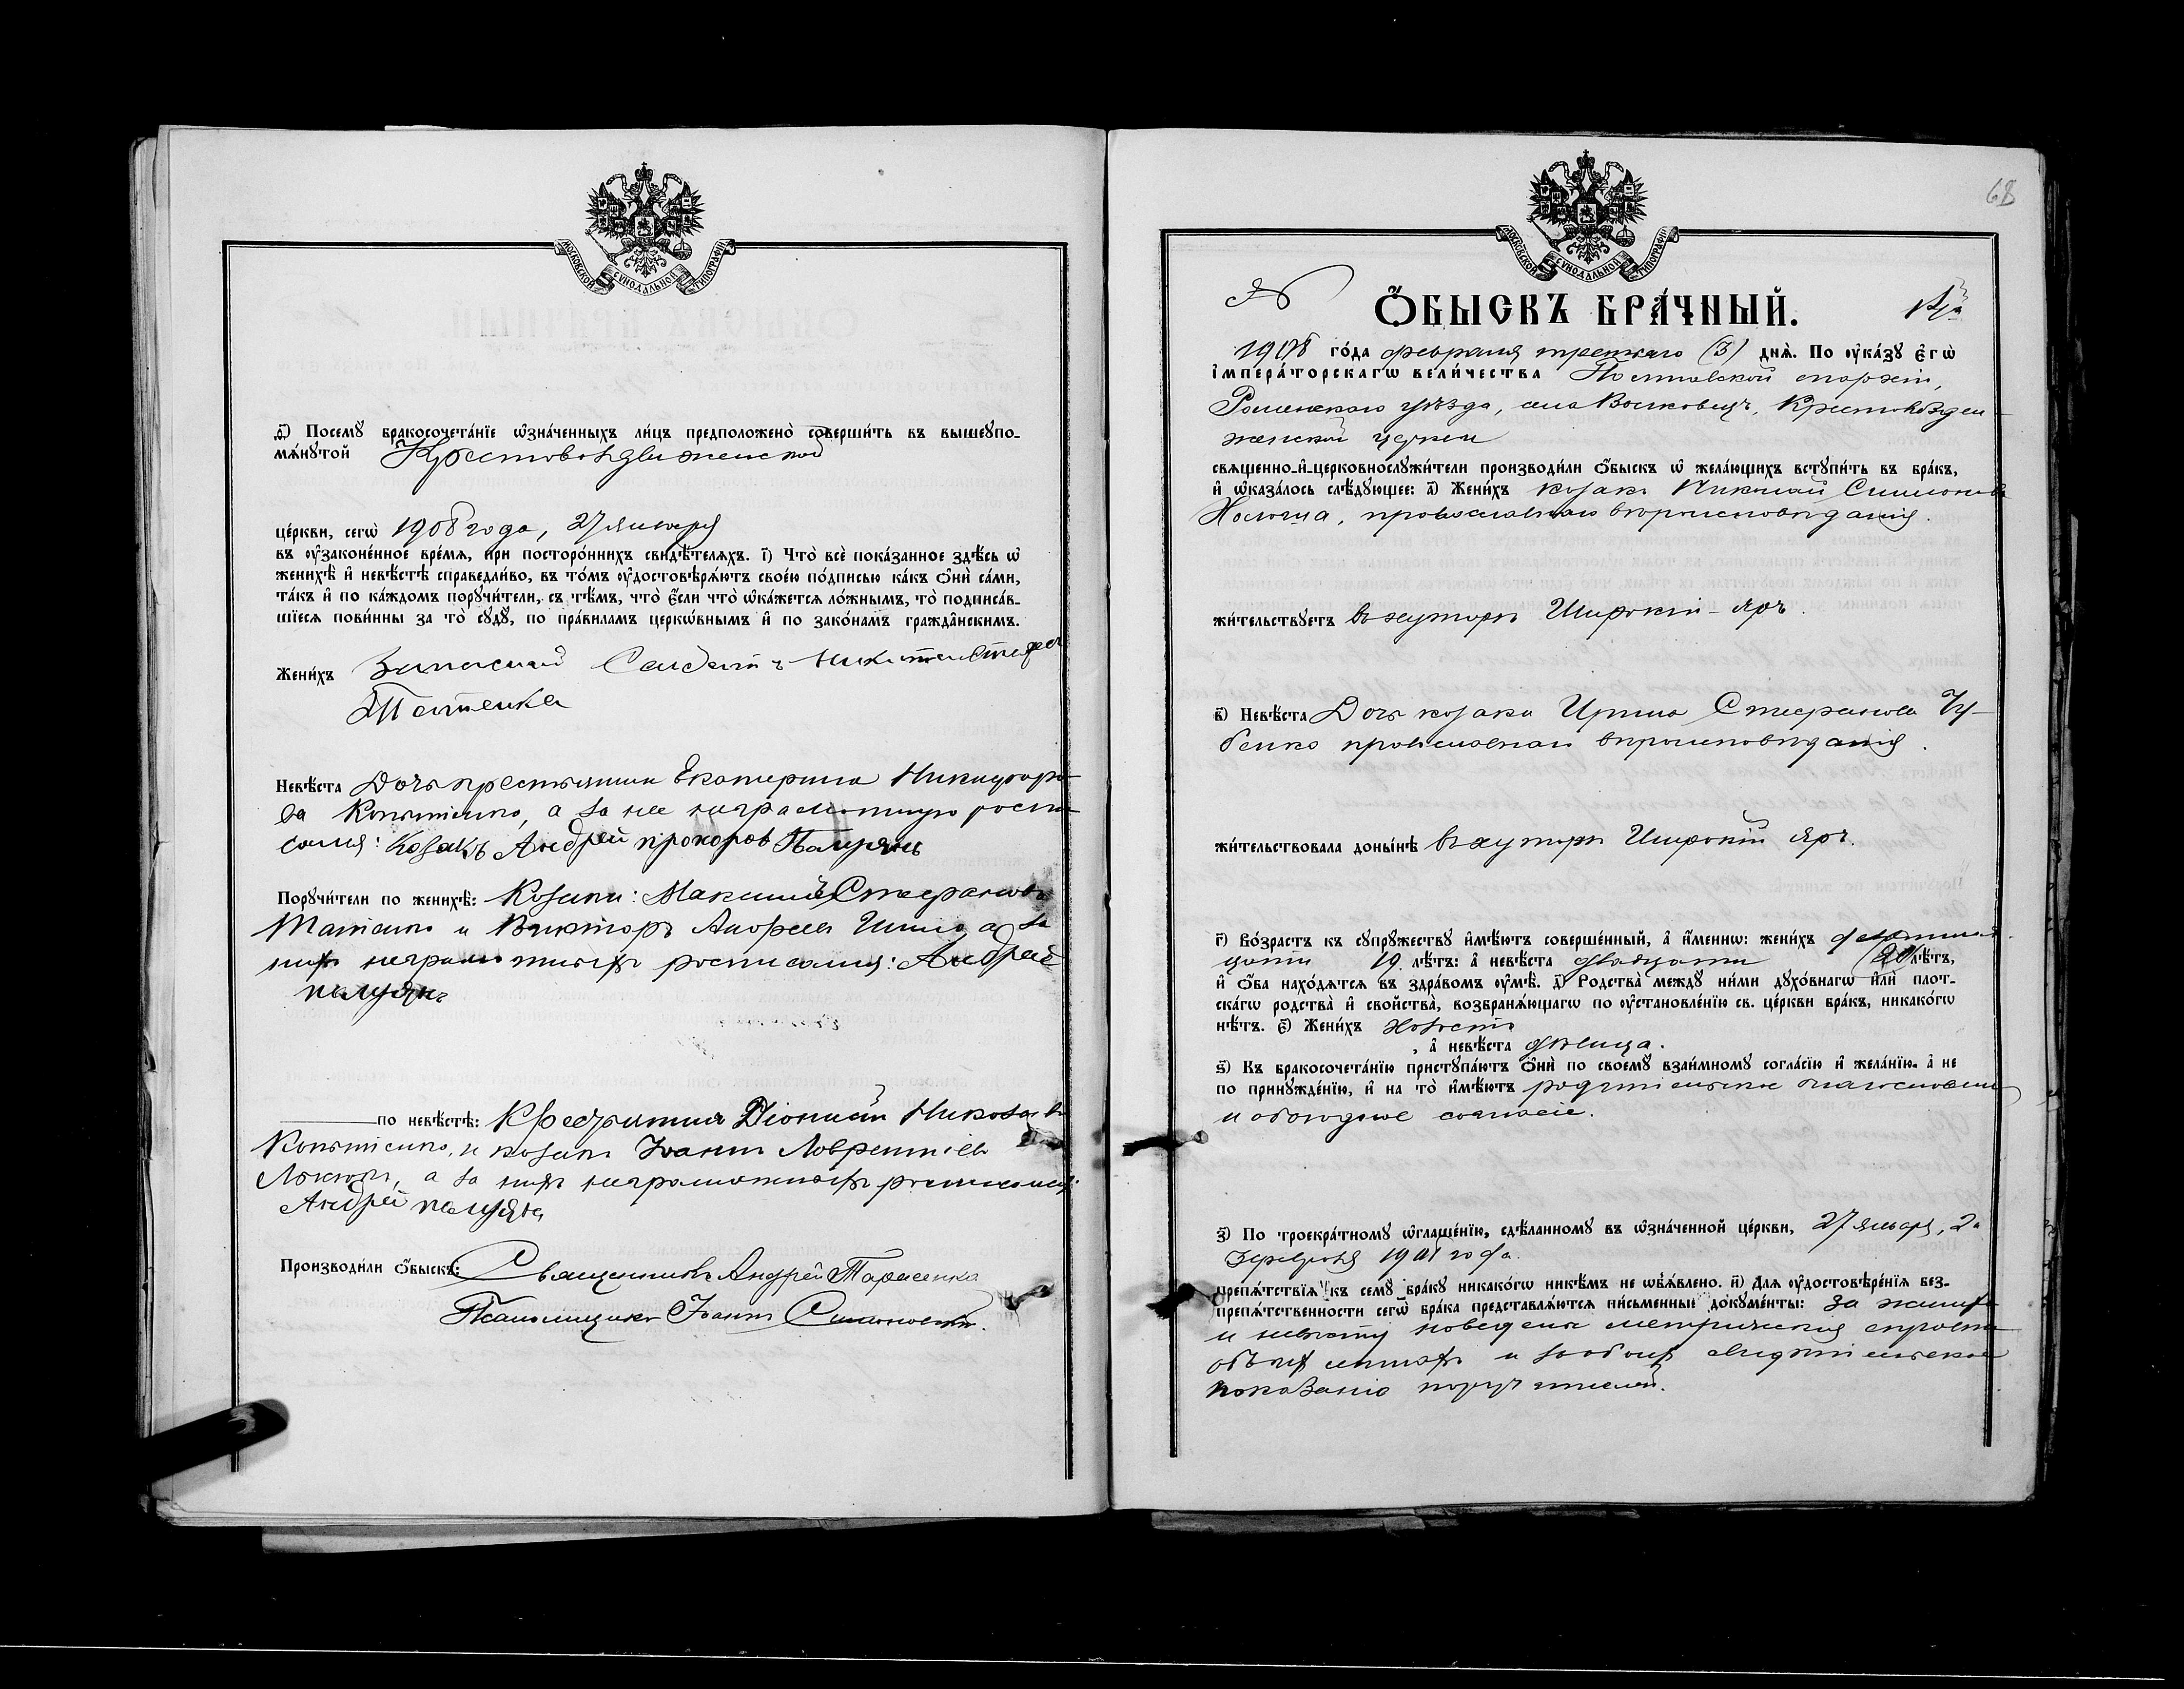 МОСКОВСКОЙ СѴНОДАЛЬНОЙ ТИПОГРАФІИ
ѳ҃) Посемꙋ̀ бракосочета́нїе ѡ҆зна́ченныхъ ли́цъ предположено̀ соверши́ть въ вышеꙋпо-
мѧ́нꙋтой Крестовоздвиженской
це́ркви, сегѡ̀ 1908 года, 27 января
въ ᲂу҆зако́ненное вре́мѧ, при посторо́ннихъ свидѣ́телѧхъ. і҃) Что̀ всѐ пока́занное здѣ́сь ѡ҆
женихѣ̀ и҆ невѣ́стѣ справедли́во, въ то́мъ ᲂу҆достовѣрѧ́ютъ свое́ю по́дписью ка́къ ѻ҆нѝ са́ми,
та́къ и҆ по ка́ждомъ порꙋчи́тели, съ тѣ́мъ, что̀ є҆́сли что̀ ѡ҆ка́жетсѧ ло́жнымъ, то̀ подписа́в-
шїесѧ пови́нны за то̀ сꙋдꙋ̀, по пра́виламъ церкѡ́внымъ и҆ по зако́намъ гражда̑нскимъ.
Жени́хъ Запасный Солдатъ Никита Стефан
Татенко
Невѣ́ста Дочь крестьянина Екатерина Никифоро-
ва Копытенко, а за нее неграмотную роспи-
сался: Козакъ Андрей Прохоров
Порꙋчи́тели по женихѣ̀: Козаки: Максимъ Стефановъ
Татенко и Викторъ Андреевъ а за
нихъ неграмотныхъ росписался: Андрей
по невѣ́стѣ: Діонисій
Копытенко, и козакъ Іоаннъ Лаврентіевъ
а за нихъ неграмотныхъ росписался:
Андрей
Производи́ли ѻ҆́быскъ: Священникъ Андрей Тарасенко
Псаломщикъ Іоаннъ
68
МОСКОВСКОЙ СѴНОДАЛЬНОЙ ТИПОГРАФІИ
№
Ѻ҆́БЫСКЪ БРА́ЧНЫЙ.
1908 го́да февраля третьяго (3) днѧ̀. По ᲂу҆ка́зꙋ Є҆гѡ̀
І҆мпера́торскагѡ вели́чества Полтавской епархіи,
Роменскаго уѣзда, села Волковецъ, Крестовоздви-
женской церкви
свѧщенно-и҆-церковнослꙋжи́тели производи́ли ѻ҆́быскъ ѡ҆ жела́ющихъ встꙋпи́ть въ бра́къ,
и҆ ѡ҆каза́лось слѣ́дꙋющее: а҃) Жени́хъ козакъ Николай Симоновъ
православнаго вѣроисповѣданія.
жи́тельствꙋетъ въ хуторѣ Широкій-Яръ.
в҃) Невѣ́ста Дочь козака Ирина Стефанова Гу-
бенко православнаго вѣроисповѣданія.
жи́тельствовала доны́нѣ въ хуторѣ Широкій Яръ.
г҃) Во́зрастъ къ сꙋпрꙋ́жествꙋ и҆мѣ́ютъ соверше́нный, а҆ и҆́меннѡ: жени́хъ девятнад-
цати 19 лѣ́тъ: а҆ невѣ́ста двадцати (20) лѣ́тъ,
и҆ ѻ҆́ба нахо́дѧтсѧ въ здра́вомъ ᲂу҆мѣ̀. д҃) Родства̀ междꙋ ни́ми дꙋхо́внагѡ и҆лѝ плот-
ска́гѡ родства̀ и҆ сво́йства, возбранѧ́ющагѡ по ᲂу҆становле́нїю св. це́ркви бра́къ, никако́гѡ
нѣ́тъ. є҃) Жени́хъ холостъ
, а҆ невѣ́ста дѣвица.
ѕ҃) Къ бракосочета́нїю пристꙋпа́ютъ ѻ҆нѝ по своемꙋ̀ взаи́мномꙋ согла́сїю и҆ жела́нїю. а҆ не
по принꙋжде́нїю, и҆ на то̀ и҆мѣ́ютъ родительское благословеніе
и обоюдное согласіе.
з҃) По троекра́тномꙋ ѡ҆глаше́нїю, сдѣ́ланномꙋ въ ѡ҆зна́ченной це́ркви, 27 января, 2 и
3 февраля 1908 года.
препѧ́тствїѧ къ семꙋ̀ бра́кꙋ никако́гѡ никѣ́мъ не ѡ҆б̾ѧ́влено. и҃) Длѧ ᲂу҆достовѣре́нїѧ без-
препѧ́тственности сегѡ̀ бра́ка представлѧ́ютсѧ пи́сьменные докꙋме́нты: за жениха
и невѣсту поведены метрическія справки
объ ихъ лѣтахъ и за обоихъ свидѣтельское
показаніе поручителей.